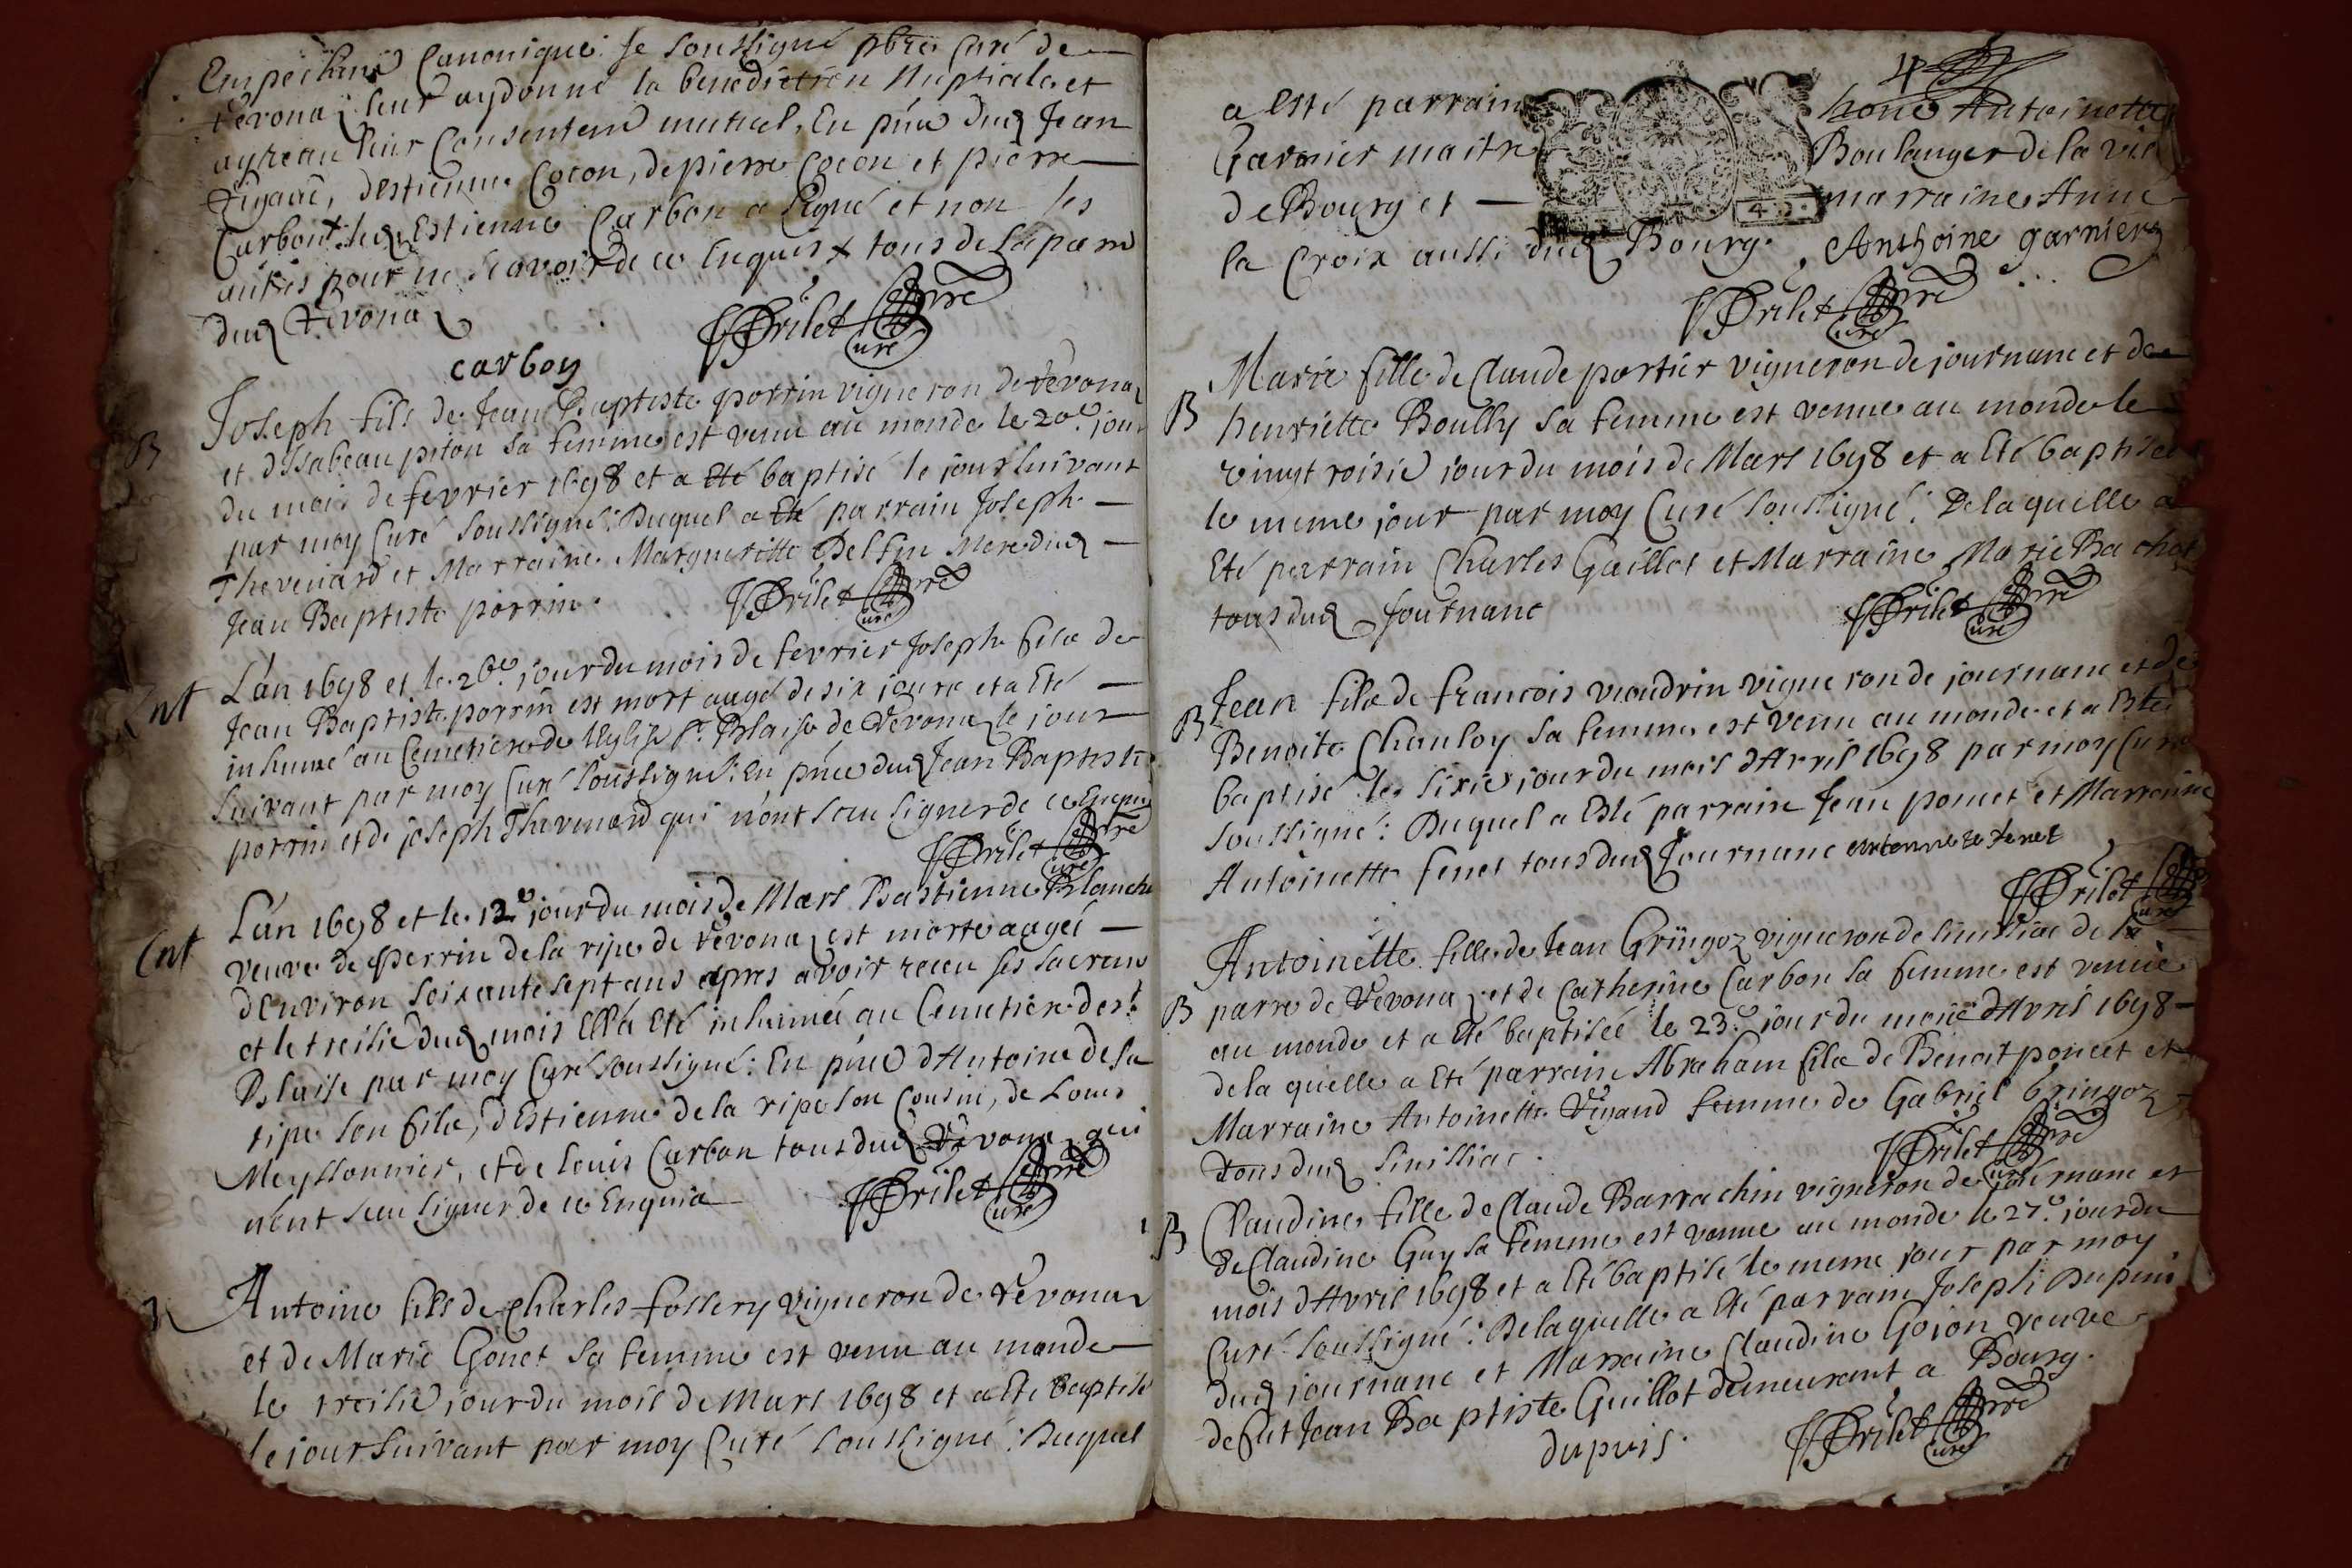 Empeschemt Canonique. Je soussigné pbre Curé de
Revona leur ay donné la benediction Nuptiale et
ay receu leur Consentemt mutuel, En pnce dud Jean
Vigand, d'Estienne Cocon, de pierre Cocon et pierre
Carbon led Estienne Carbon a signé et non les
autres pour ne scavoir de ce Enquis x tous de la parre
dud Revona
JJ Brilet pbre Curé
carbon
B
Joseph fils de Jean Baptiste porrin vigneron de Revona
et d'Isabeau piton sa femme est venu au monde le 20e jour
du mois de fevrier 1698 et a Eté baptisé le jour suivant
par moy Curé soussigné: Duquel a Eté parrain Joseph
Thevenard et Marraine Margueritte Delfin Mere dud
Jean Baptiste porrin.
JJ Brilet pbre Curé
Ent
L'an 1698 et le 26e jour du mois de fevrier Joseph fils de
Jean Baptiste porrin est mort aagé de six jours et a Eté
inhumé au Cemetiere de l'Eglise St Blaise de Revona le jour
suivant par moy Curé soussigné: En pnce dud Jean Baptiste
porrin et de joseph Thevenard qui n'ont sceu signer de ce Enquis
JJ Brilet pbre Curé
Ent
L'an 1698 et le 12e jour du mois de Mars Bastienne Blanche
veuve de Perrin de la ripe de Revona est morte aagée
d'Environ soixante sept ans apres avoir receu ses sacremts
et le treisie dud mois Ell'a Eté inhumée au Cemetiere de st
Blaise par moy Curé soussigné: En pnce d'Antoine de la
ripe son fils, d'Estienne de la ripe son Cousin, de Louis
Meyssonnier, et de Louis Carbon tous dud Revona qui
n'ont sceu signer de ce Enquis
JJ Brilet pbre Curé
B
Antoine fils de Charles fossery vigneron de Revona
et de Marie Gonet sa femme est venu au monde
le treisie jour du mois de Mars 1698 et a Eté baptisé
le jour suivant par moy Curé soussigné: Duquel
4
a Esté parrain hone Antoinette
Garnier maitre Boulanger de la vile
de Bourg et marraine Anne
la Croix aussi dud Bourg. Anthoine garnier
JJ Brilet pbre Curé
B
Marie fille de Claude portier vigneron de journanc et de
henriette Boully sa femme est venue au monde le
vingt roisie jour du mois de Mars 1698 et a Eté baptisée
le meme jour par moy Curé soussigné: De laquelle a
Eté parrain Charles Gaillot et Marraine Marie Bachot
tous dud Journanc
JJ Brilet pbre Curé
B
Jean fils de francois vaudrin vigneron de journanc et de
Benoite Chanloy sa femme est venu au monde et a Eté
baptisé le sixie jour du mois d'Avril 1698 par moy Curé
soussigné: Duquel a Esté parrain Jean poncet et Marraine
Antoinette fenet tous dud Journanc
JJ Brilet pbre Curé
B
Antoinette fille de Jean Gringoz vigneron de Sinissiac de la
parre de Revona et de Catherine Carbon sa femme est venue
au monde et a Eté baptisée le 23e jour du mois d'Avril 1698
de la quelle a Eté parrain Abraham fils de Benoit poncet et
Marraine Antoinette Vigand femme de Gabriel Gringoz
tous dud Sinissiac.
JJ Brilet pbre Curé
B
Claudine fille de Claude Barrachin vigneron de journanc et
de Claudine Guy sa femme est venue au monde le 27e jour du
mois d'Avril 1698 et a Eté baptisé le meme jour par moy
Curé soussigné: De laquelle a Eté parrain Joseph Dupuis
dud journanc et Marraine Claudine Gojon veuve
de fut Jean Baptiste Guillot demeurant a Bourg.
dupuis.
JJ Brilet pbre Curé